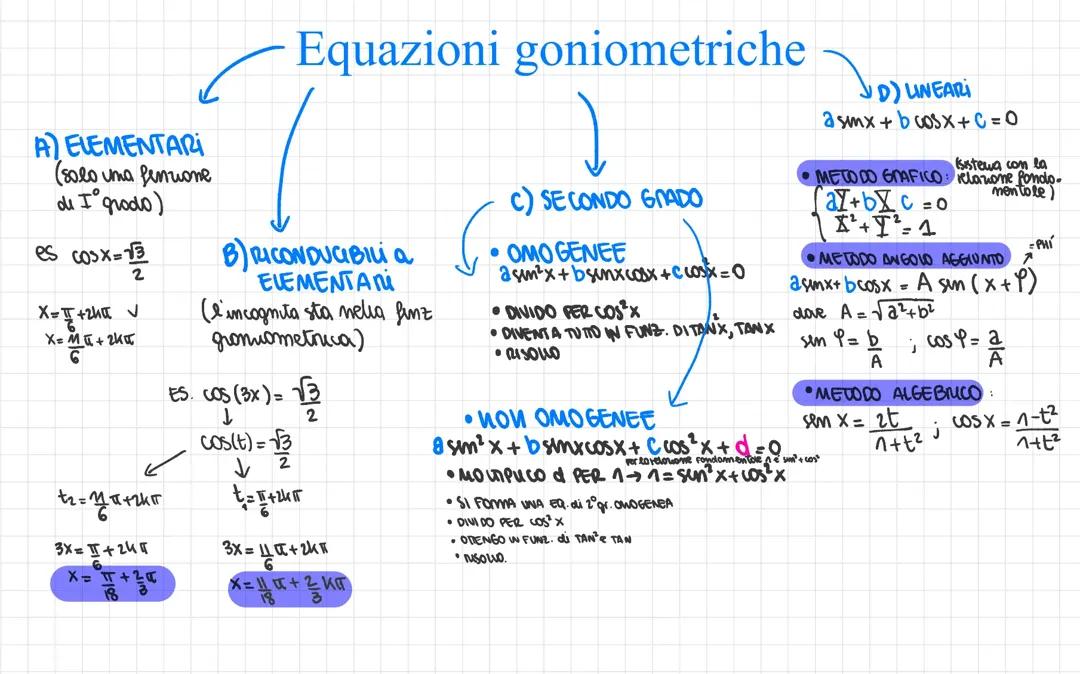 Equazioni goniometriche
A) ELEMENTARI
(solo una funzione
di I° grado)
es cosx = √3/2
x = π/6 + 2kπ ✓
x = 11/6 π + 2kπ
B) RICONDUCIBILI a
ELEMENTARI
(l'incognita sta nella funz
goniometrica)
ES. cos(3x) = √3/2
↓
cos(t) = √3/2
t₂ = 11/6 π + 2kπ
3x = π/6 + 2kπ
x = π/18 + 2/3 π
t₁ = π/6 + 2kπ
3x = 11/6 π + 2kπ
x = 11/18 π + 2/3 kπ
C) SECONDO GRADO
• OMOGENEE
a sin²x + b sinxcosx + c cos²x = 0
• DIVIDO PER COS²X
• DIVENTA TUTTO IN FUNZ. DI TAN²X, TANX
• RISOLVO
• NON OMOGENEE
a sin²x + b sinxcosx + c cos²x + d = 0
per la relazione fondamentale 1 è sin²+cos²
• MOLTIPLICO d PER 1 → 1 = sen²x + cos²x
• SI FORMA UNA EQ. di 2° gr. OMOGENEA
• DIVIDO PER COS²X
• OTTENGO IN FUNZ. di TAN² e TAN
• RISOLVO.
D) LINEARI
a sinx + b cosx + c = 0
• METODO GRAFICO: (sistema con la
relazione fonda-
mentale)
{ aY + bX c = 0
X² + Y² = 1
• METODO ANGOLO AGGIUNTO
= PHI
a sinx + b cosx = A sin (x + φ)
dove A = √a²+b²
sen φ = b/A ; cos φ = a/A
• METODO ALGEBRICO :
sen x = 2t/1+t² ; cos x = 1-t²/1+t²